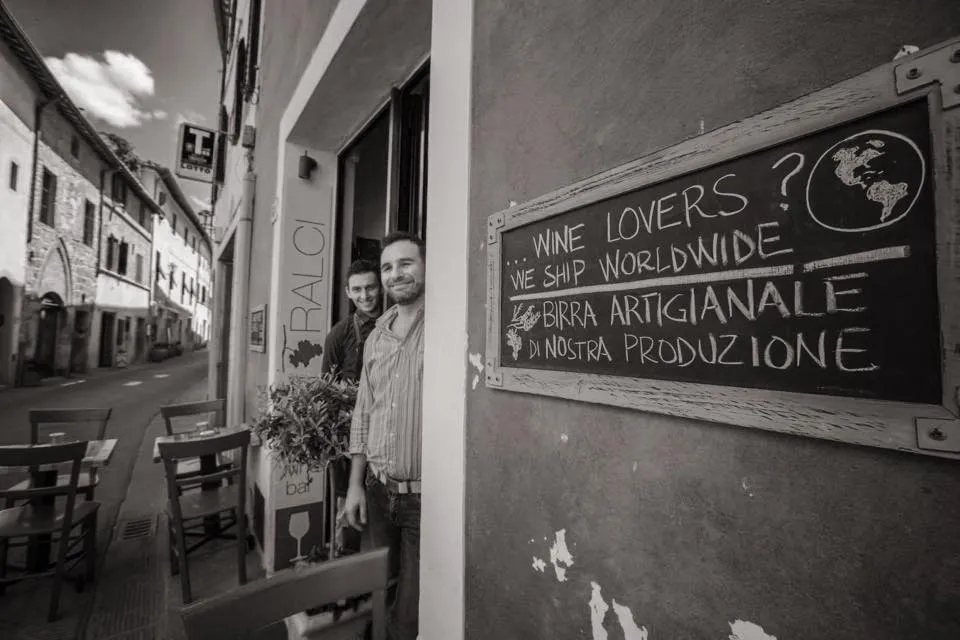 T
LOTTO
TRALCI
wine
bar
... WINE LOVERS ?
WE SHIP WORLDWIDE
BIRRA ARTIGIANALE
DI NOSTRA PRODUZIONE